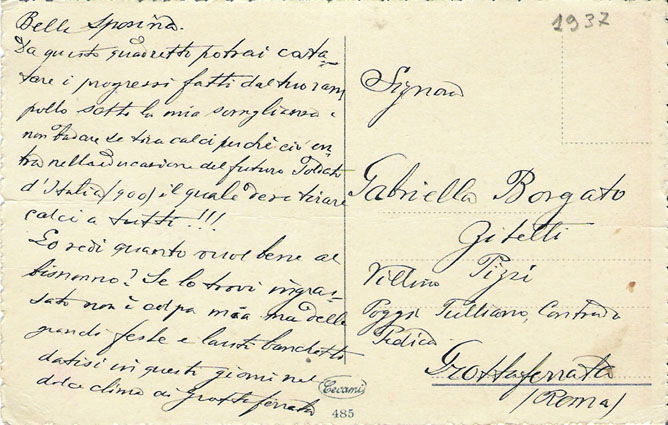 Bella Sposina.
Da questo quadretti potrai costa-
tare i progressi fatti dal tuo ram
pollo sotto la mia sorveglianza e
non badare se tira calci perchè ciò en-
tra nella educazione del futuro Soldato
d'Italia (900) il quale deve tirare
calci a tutti!!!
Lo vedi quanto vuol bene al
bisnonno? Se lo trovi ingras-
sato non è colpa mia ma delle
grandi feste e lauti banchetti
datisi in questi giorni nel
dolce clima di Grottaferrata
1937
Signora
Gabriella Borgato
Zitelli
Villino Pizzi
Poggio Tulliano, Contrada
Pedica
Grottaferrata
(Roma)
Cecami
485